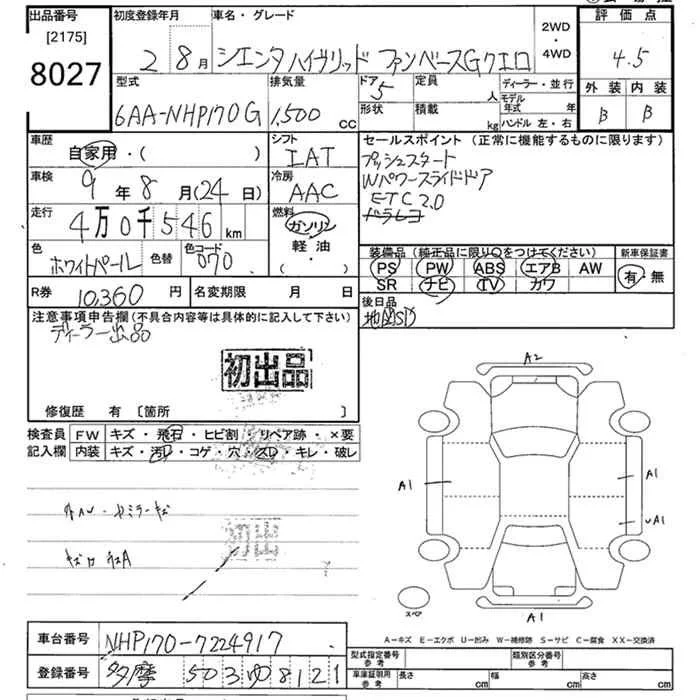 出品番号
[2175]
8027
初度登録年月
2 8月
車名・グレード
シエンタハイブリッド ファンベースGクエロ
2WD
・
4WD
評価点
4.5
外装 内装
B B
型式
6AA-NHP170G
排気量
1,500 cc
ドア
5
形状
定員
人
積載
kg
ディーラー・並行
モデル年式 年
ハンドル 左・右
車歴
自家用・( )
シフト
IAT
車検
9年8月(24日)
冷房
AAC
走行
4万0千546km
燃料
ガソリン
軽油・
( ・ )
色
ホワイトパール
色替
色コード
070
R券
10,360円
名変期限 月 日
セールスポイント(正常に機能するものに限ります)
プッシュスタート
Wパワースライドドア
ETC2.0
ドラレコ
装備品(純正品に限り○をつけてください)
PS PW ABS エアB AW
SR ナビ TV カワ
新車保証書
有・無
後日品
地図SD
注意事項申告欄(不具合内容等は具体的に記入して下さい)
ディーラー出品
初出品
修復歴 有 [箇所 ]
検査員記入欄
FW キズ・飛石・ヒビ割・リペア跡・×要
内装 キズ・汚レ・コゲ・穴・スレ・キレ・破レ
初出
A2
A1
A1
A1
A1
スペア
A−キズ E−エクボ U−凹み W−補修跡 S−サビ C−腐食 XX−交換済
車台番号
NHP170-7224917
登録番号
多摩 503 ゆ 8121
型式指定番号
参考
類別区分番号
参考
車庫証明用
参考
長さ cm
幅 cm
高さ cm